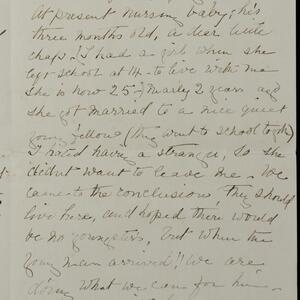 At present nursing baby, his
three months old, a dear little
chap. I had a girl when she
left school at 14 - to live with me
She is now 25 & nearly 2 years and
she got married to a nice quiet
young fellow (they went to school togth)
I hated having a stranger, so she
didnt want to leave me - We
came to the conclusion, they should
live here, and hoped there would
be no youngsters, but when the
young man arrived!! We are
doing what we can for him -